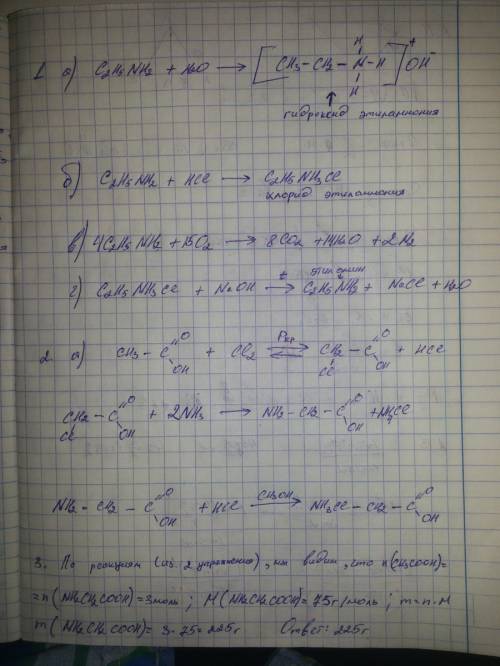 1. а) C2H5NH2 + H2O → [CH3-CH2-N-H]+ OH-
H
H
гидроксид этиламмония
б) C2H5NH2 + HCl → C2H5NH3Cl
хлорид этиламмония
в) 4C2H5NH2 + 15O2 → 8CO2 + 14H2O + 2N2
этиламин
г) C2H5NH3Cl + NaOH →t C2H5NH2 + NaCl + H2O
2. а) CH3 - C =O OH + Cl2 ⇌ Pкр CH2 - C =O OH + HCl
Cl
CH2 - C =O OH + 2NH3 → NH2 - CH2 - C =O OH + NH4Cl
Cl
NH2 - CH2 - C =O OH + HCl → CH3OH NH3Cl - CH2 - C =O OH
3. По реакциям (из 2 упражнения), мы видим, что n(CH3COOH)=
= n(NH2CH2COOH)=3моль; M(NH2CH2COOH)=75г/моль; m=n·M
m(NH2CH2COOH)= 3·75=225г Ответ: 225г